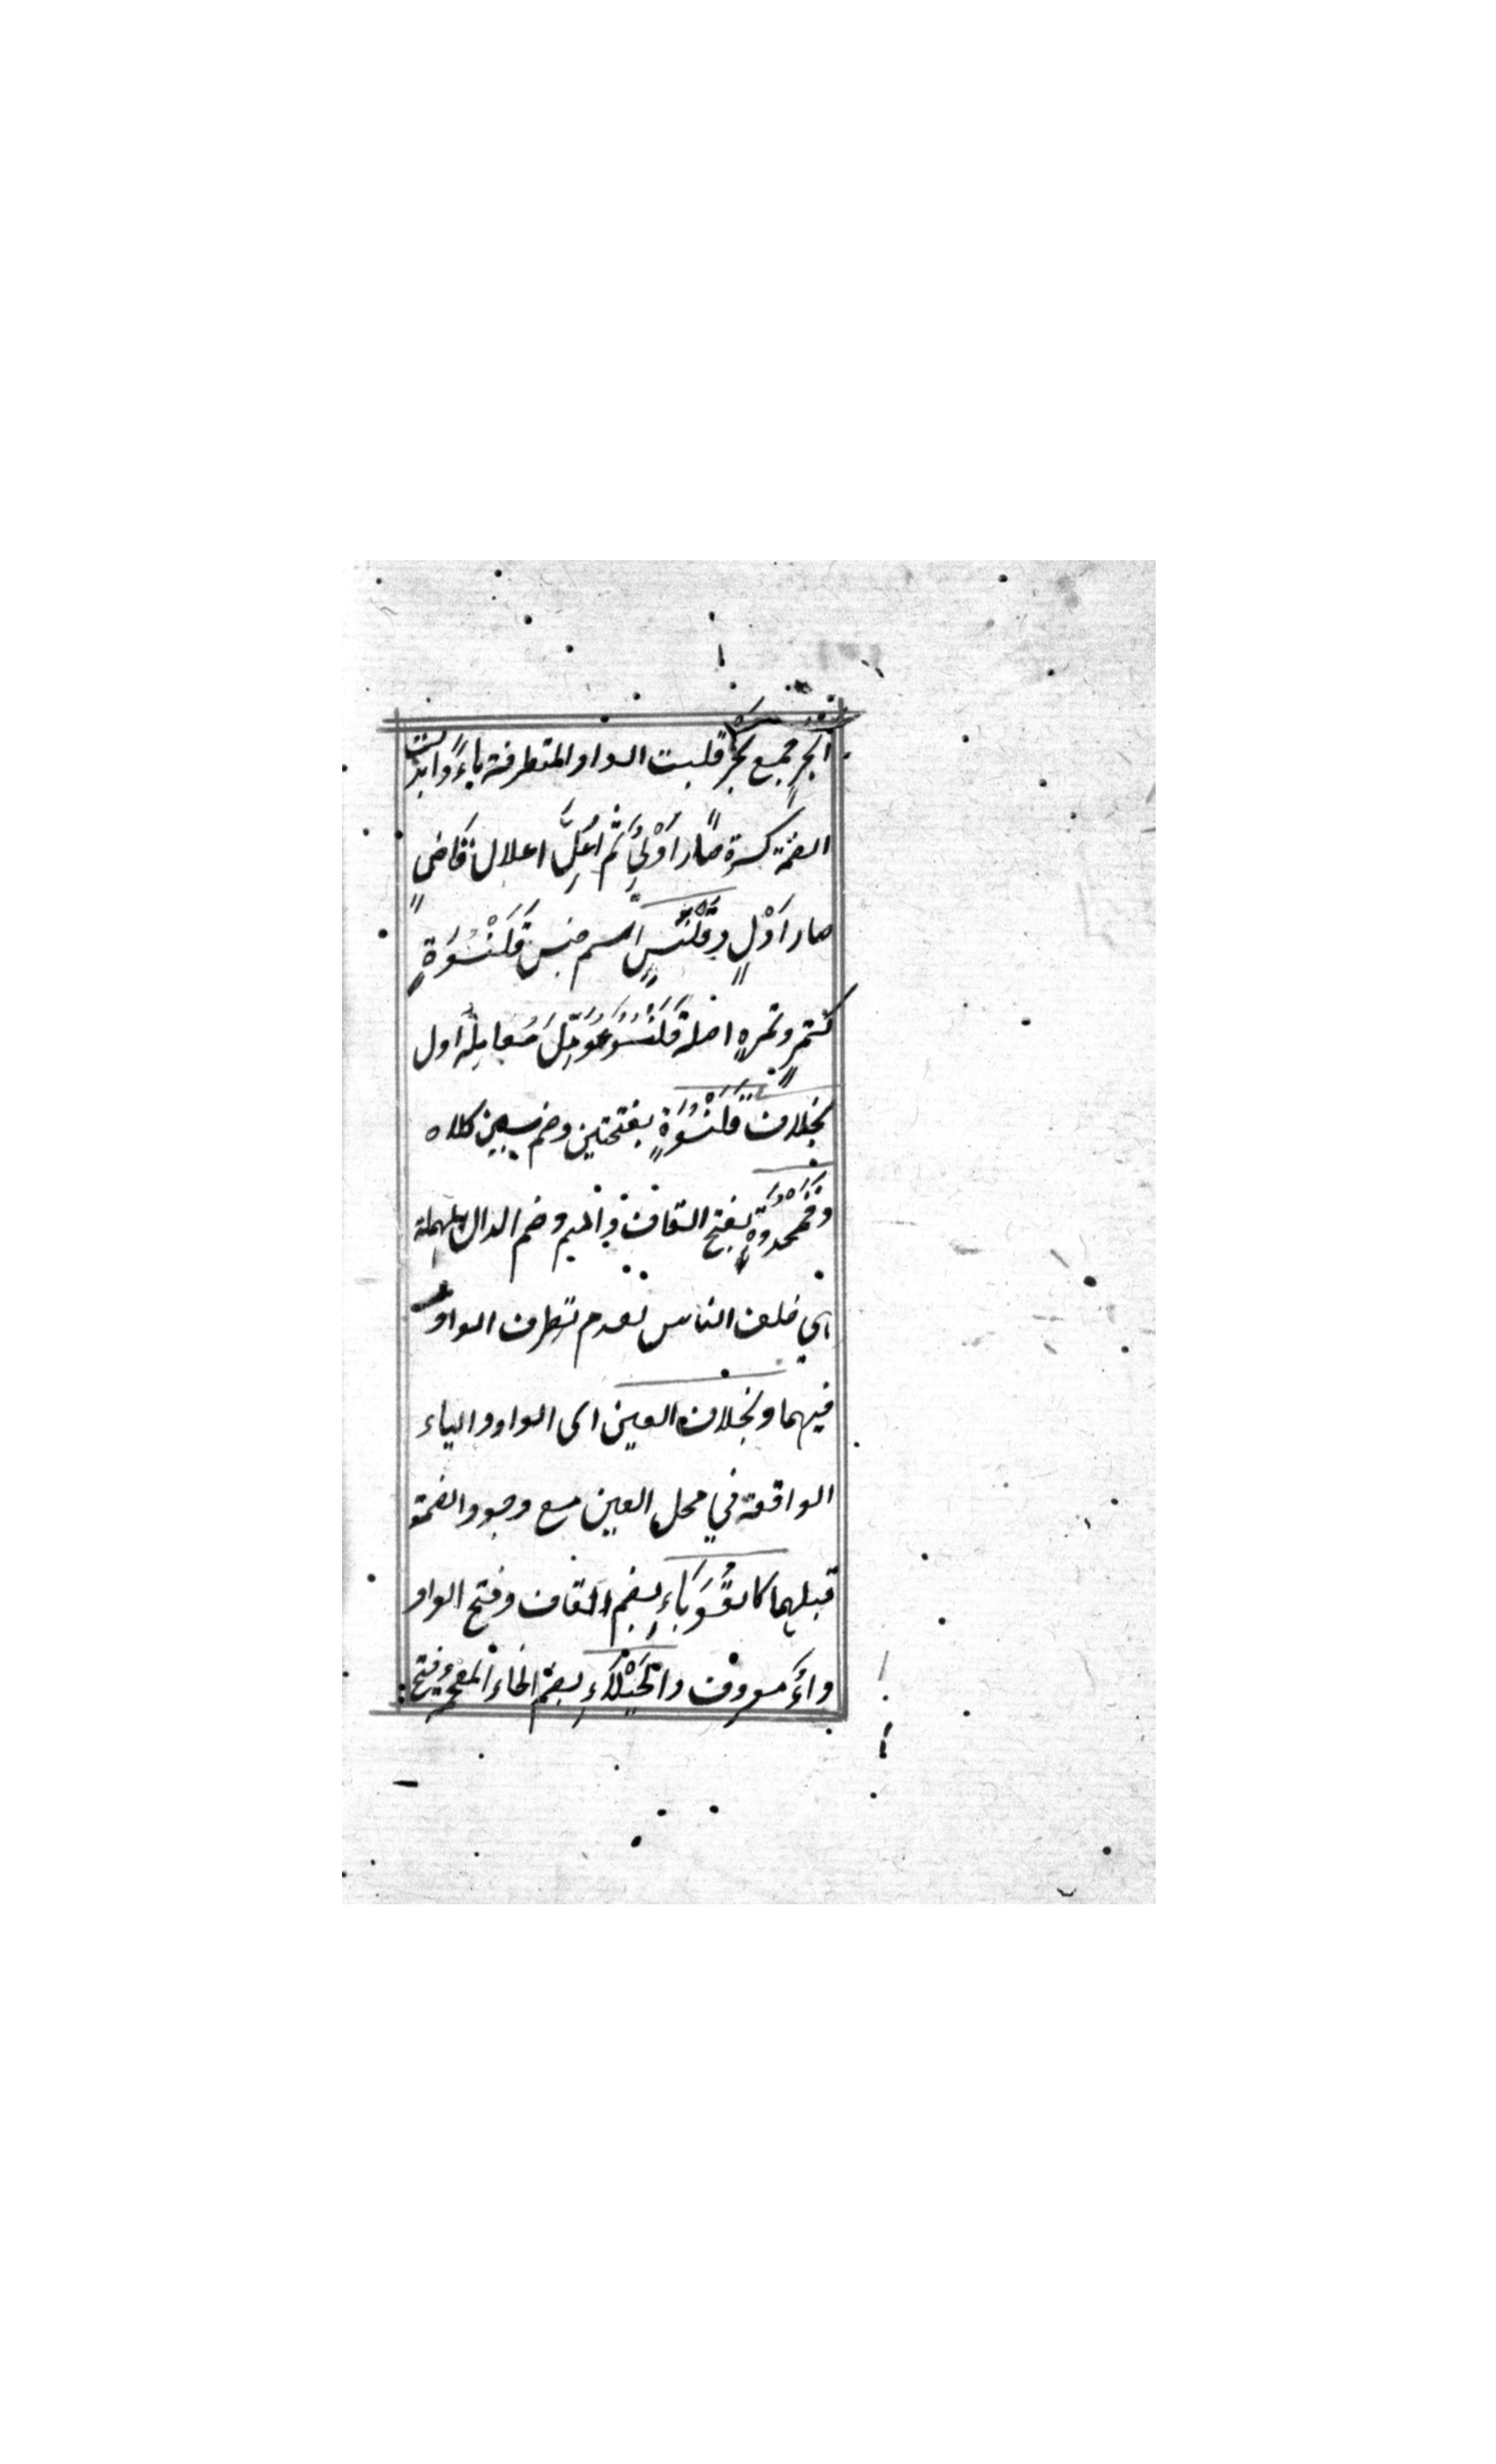 الجر جمع بجر قلبت الواو المتطرفة ياءً وابدلت
الضمة كسرة صار اَوْلِيٌ ثم اُعِلَّ اعلال قَاضٍي
صار اَوْلٍ وقَلَنْسٍ اسم جنس قَلَنْسُوَةٍ
كتمرٍ وتمرةٍ اصله قَلَنْسُوٌ عُومِلَ مُعَامِلة اول
بخلاف قَلَنْسُوَةٍ بفتحتين وضم سين كلاه
وقَمَحْدُوَةٍ بفتح القاف والميم وضم الدال المهملة
اي خلف الناس لعدم تطرف الواو
فيهما وبخلاف العين اى الواو والياء
الواقعة في محل العين مع وجود الضمة
قبلهما كالقُوَبَاءِ بضم القاف وفتح الواو
داءٌ معروف والخُيَلَاءِ بضم الخاء المعجمة وفتح